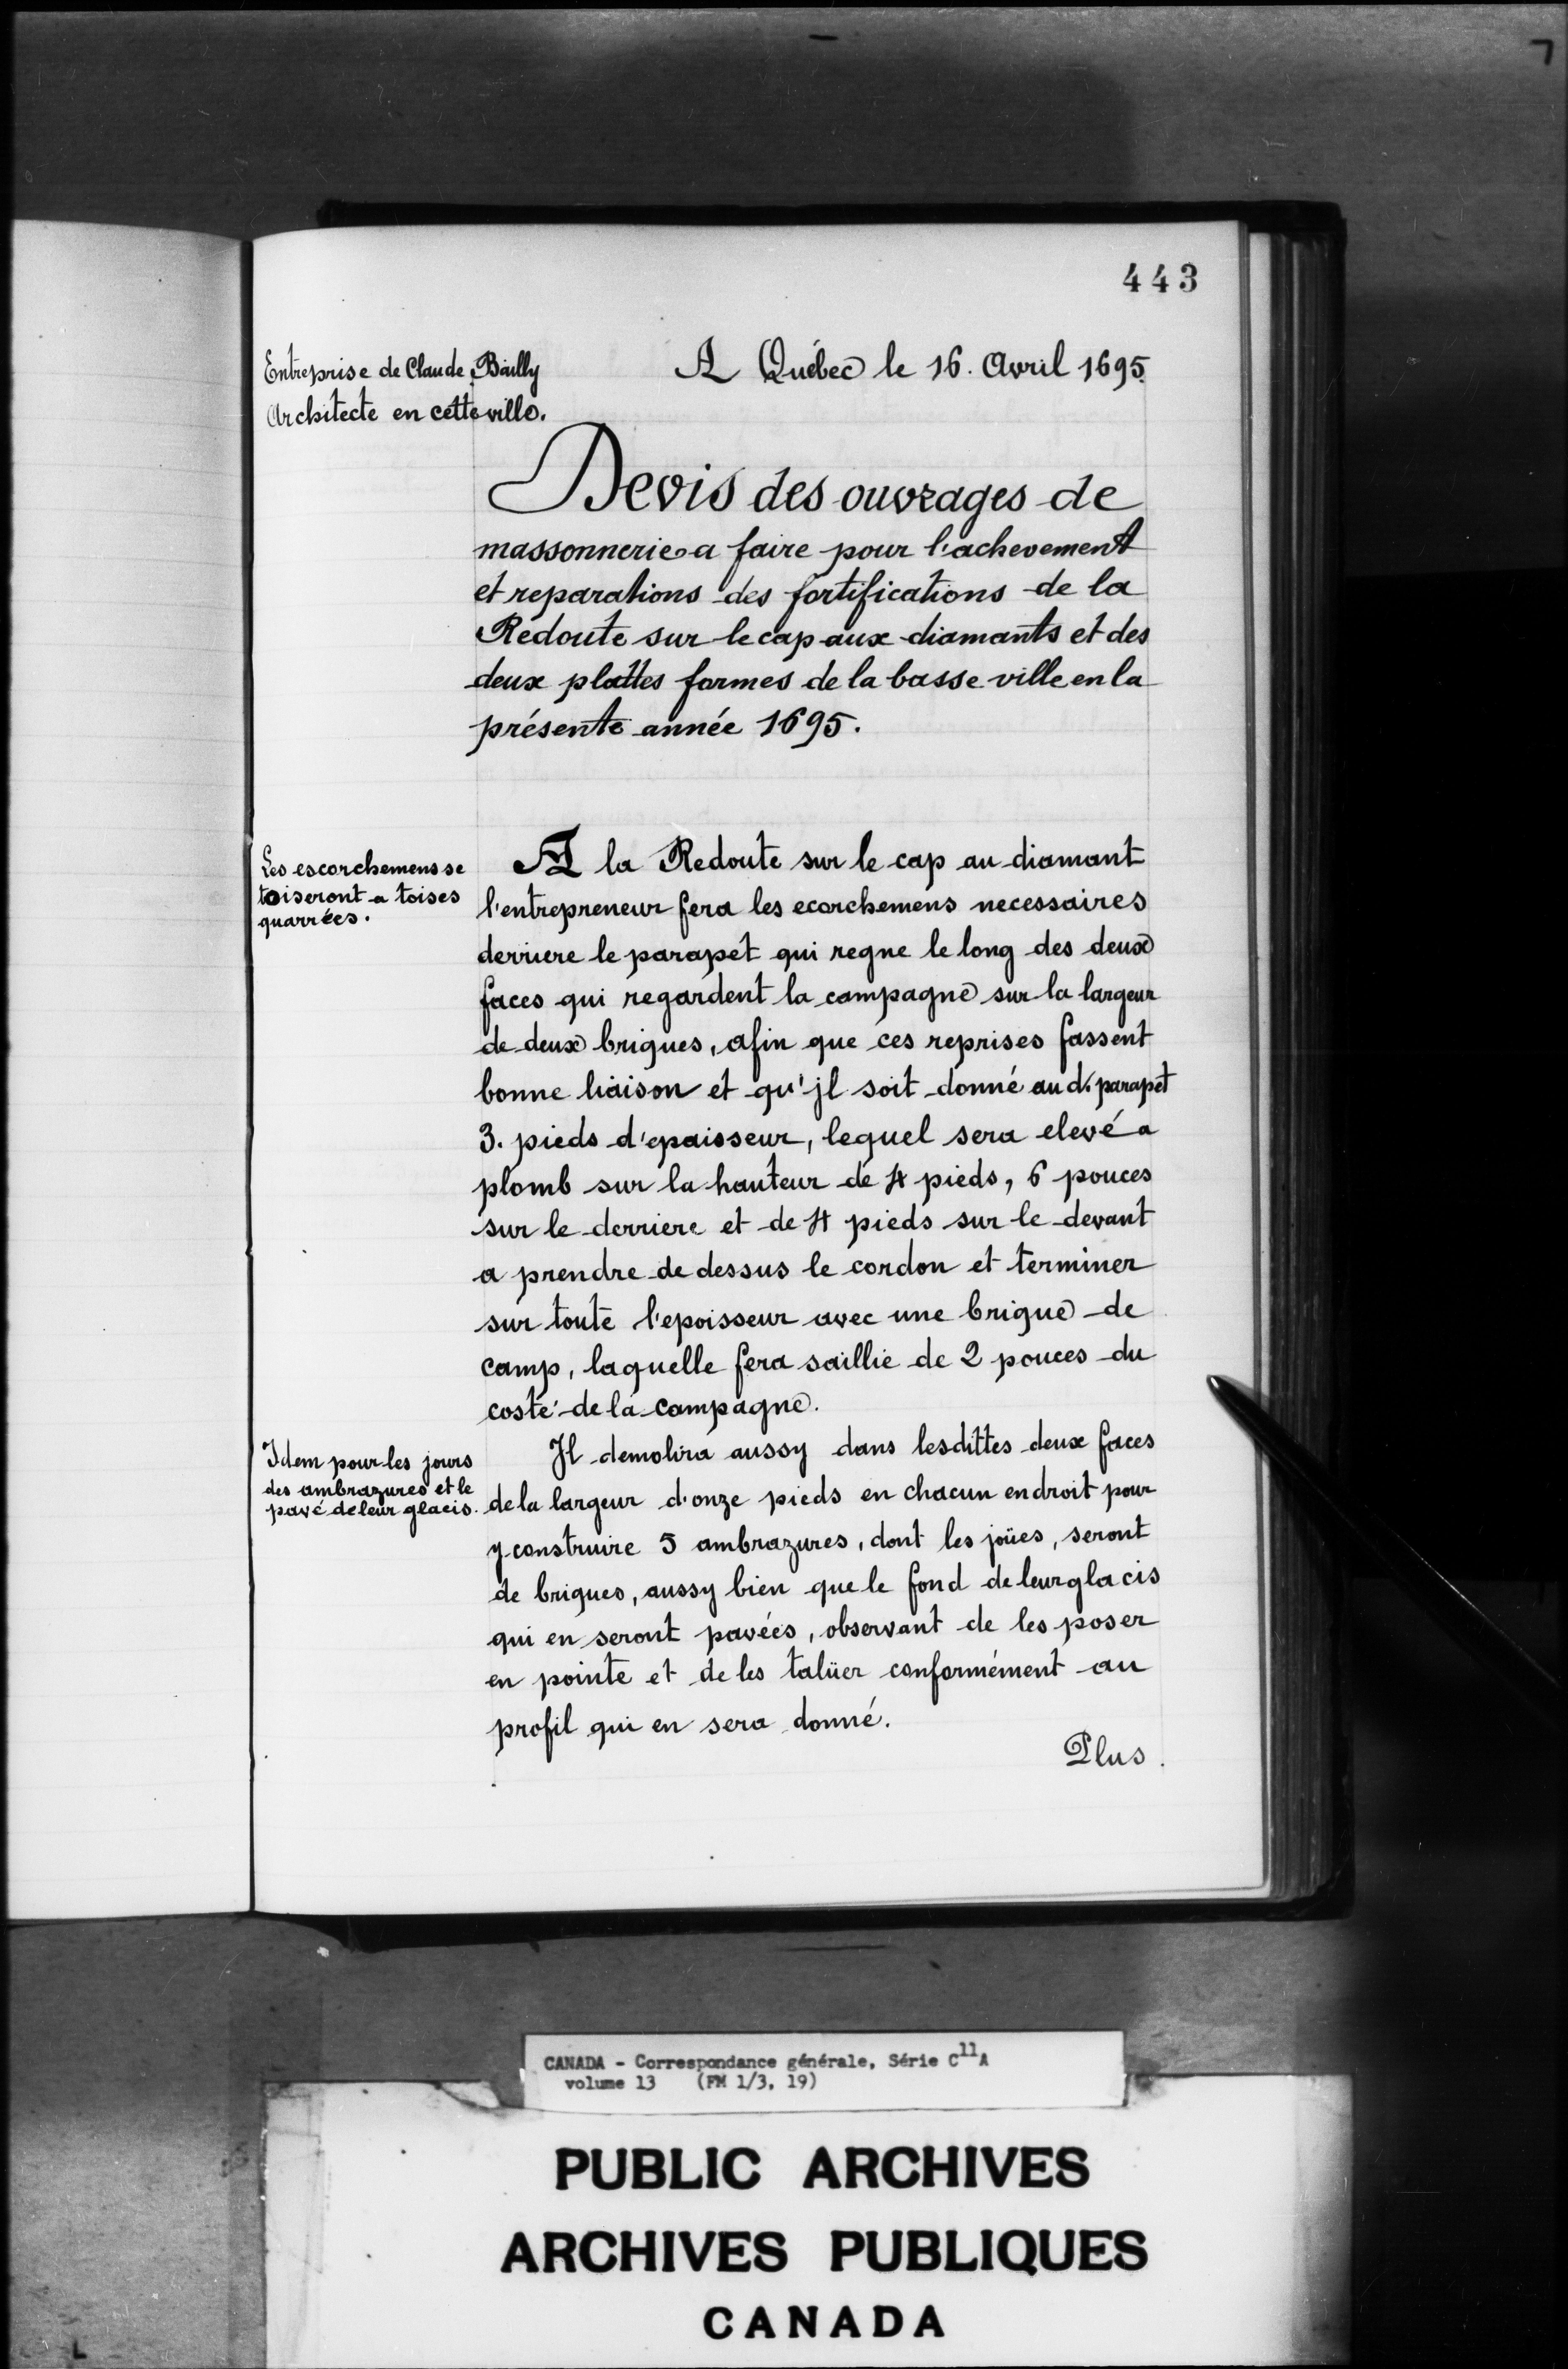 443
Entreprise de Claude Bailly
Architecte en cette ville.
A Québec le 16. Avril 1695.
Devis des ouvrages de
massonnerie a faire pour l'achevement
et reparations des fortifications de la
Redoute sur le cap aux diamants et des
deux plattes formes de la basse ville en la
présente année 1695.
Les escorchemens se
toiseront a toises
quarrées.
A la Redoute sur le cap au diamant
l'entrepreneur fera les ecorchemens necessaires
derriere le parapet qui regne le long des deux
faces qui regardent la campagne sur la largeur
de deux briques, afin que ces reprises fassent
bonne liaison et qu'jl soit donné au d. parapet
3. pieds d'epaisseur, lequel sera elevé a
plomb sur la hauteur de 4 pieds, 6 pouces
sur le derriere et de 4 pieds sur le devant
a prendre de dessus le cordon et terminer
sur toute l'epoisseur avec une brique de
camp, laquelle fera saillie de 2 pouces du
costé de la campagne.
Idem pour les jours
des ambrazures et le
pavé de leur glacis.
Jl demolira aussy dans lesdittes deux faces
de la largeur d'onze pieds en chacun endroit pour
y construire 5 ambrazures, dont les joües, seront
de briques, aussy bien que le fond de leur glacis
qui en seront pavées, observant de les poser
en pointe et de les talüer conformément au
profil qui en sera donné.
Plus.
CANADA - Correspondance générale, Série C11A
volume 13 (FM 1/3, 19)
PUBLIC ARCHIVES
ARCHIVES PUBLIQUES
CANADA
L